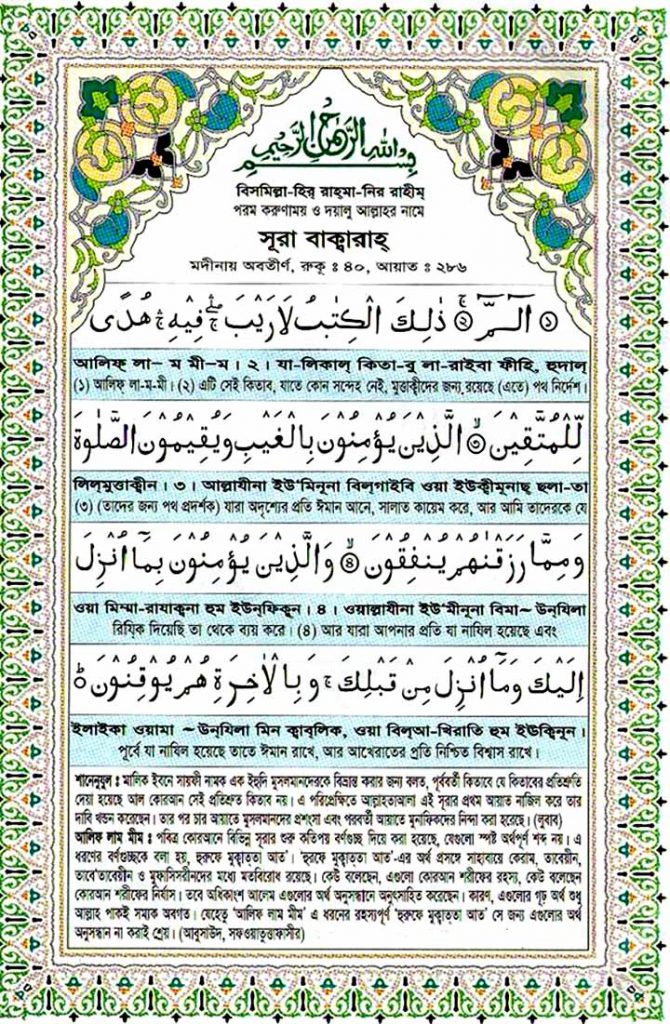 بِسْمِ اللهِ الرَّحْمٰنِ الرَّحِيْمِ
বিসমিল্লা-হির্ রাহমা-নির রাহীম্
পরম করুণাময় ও দয়ালু আল্লাহর নামে
সূরা বাক্বারাহ্
মদীনায় অবতীর্ণ, রুকু ঃ ৪০, আয়াত ঃ ২৮৬
الٓـمّٓ ۚ ذٰلِكَ الْكِتٰبُ لَا رَيْبَ ۛ فِيْهِ ۛ هُدًى
আলিফ্ লা– ম মী–ম। ২। যা-লিকাল্ কিতা-বু লা-রাইবা ফীহি, হুদাল্
(১) আলিফ্ লা-ম-মী। (২) এটি সেই কিতাব, যাতে কোন সন্দেহ নেই, মুত্তাকীদের জন্য রয়েছে (এতে) পথ নির্দেশ।
لِّلْمُتَّقِيْنَ الَّذِيْنَ يُؤْمِنُوْنَ بِالْغَيْبِ وَيُقِيْمُوْنَ الصَّلٰوةَ
লিল্মুত্তাক্বীন। ৩। আল্লাযীনা ইউ'মিনূনা বিল্গাইবি ওয়া ইউক্বীমূনাছ্ ছলা-তা
(৩) (তাদের জন্য পথ প্রদর্শক) যারা অদৃশ্যের প্রতি ঈমান আনে, সালাত কায়েম করে, আর আমি তাদেরকে যে
وَمِمَّا رَزَقْنٰهُمْ يُنْفِقُوْنَ ۝ وَالَّذِيْنَ يُؤْمِنُوْنَ بِمَآ اُنْزِلَ
ওয়া মিম্মা-রাযাক্বনা হুম ইউন্ফিকূন। ৪। ওয়াল্লাযীনা ইউ'মীনূনা বিমা~ উন্যিলা
রিযিক্ দিয়েছি তা থেকে ব্যয় করে। (৪) আর যারা আপনার প্রতি যা নাযিল হয়েছে এবং
اِلَيْكَ وَمَآ اُنْزِلَ مِنْ قَبْلِكَ ۚ وَبِالْاٰخِرَةِ هُمْ يُوْقِنُوْنَ ؕ
ইলাইকা ওয়ামা ~উন্যিলা মিন ক্বাব্লিক, ওয়া বিল্আ-খিরাতি হুম ইউকিনূন।
পূর্বে যা নাযিল হয়েছে তাতে ঈমান রাখে, আর আখেরাতের প্রতি নিশ্চিত বিশ্বাস রাখে।
শানেনুযুল ঃ মালিক ইবনে সায়ফী নামক এক ইহুদি মুসলমানদেরকে বিভ্রান্ত করার জন্য বলত, পূর্ববর্তী কিতাবে যে কিতাবের প্রতিশ্রুতি
দেয়া হয়েছে আল কোরআন সেই প্রতিশ্রুত কিতাব নয়। এ পরিপ্রেক্ষিতে আল্লাহতাআলা এই সূরার প্রথম আয়াত নাজিল করে তার
দাবি খন্ডন করেছেন। তার পর চার আয়াতে মুসলমানদের প্রশংসা এবং পরবর্তী আয়াতে মুনাফিকদের নিন্দা করা হয়েছে। (লুবাব)
আলিফ লাম মীম ঃ পবিত্র কোরআনে বিভিন্ন সূরার শুরু কতিপয় বর্ণগুচ্ছ দিয়ে করা হয়েছে, যেগুলো স্পষ্ট অর্থপূর্ণ শব্দ নয়। এ
ধরণের বর্ণগুচ্ছকে বলা হয়, হুরুফে মুক্বাত্তা আত'। 'হুরুফে মুক্বাত্তা আত'-এর অর্থ প্রসঙ্গে সাহাবায়ে কেরাম, তাবেয়ীন,
তাবে'তাবেয়ীন ও মুফাসিসরীনদের মধ্যে মতবিরোধ রয়েছে। কেউ বলেছেন, এগুলো কোরআন শরীফের রহস্য, কেউ বলেছেন
কোরআন শরীফের নির্যাস। তবে অধিকাংশ আলেম এগুলোর অর্থ অনুসন্ধানে অনুৎসাহিত করেছেন। কারণ, এগুলোর গূঢ় অর্থ শুধু
আল্লাহ পাকই সম্যক অবগত। যেহেতু 'আলিফ লাম মীম' এ ধরনের রহস্যপূর্ণ 'হুরুফে মুক্বাত্তা আত' সে জন্য এগুলোর অর্থ
অনুসন্ধান না করাই শ্রেয়। (আবুসাউদ, সফওয়াতুত্তাফাসীর)